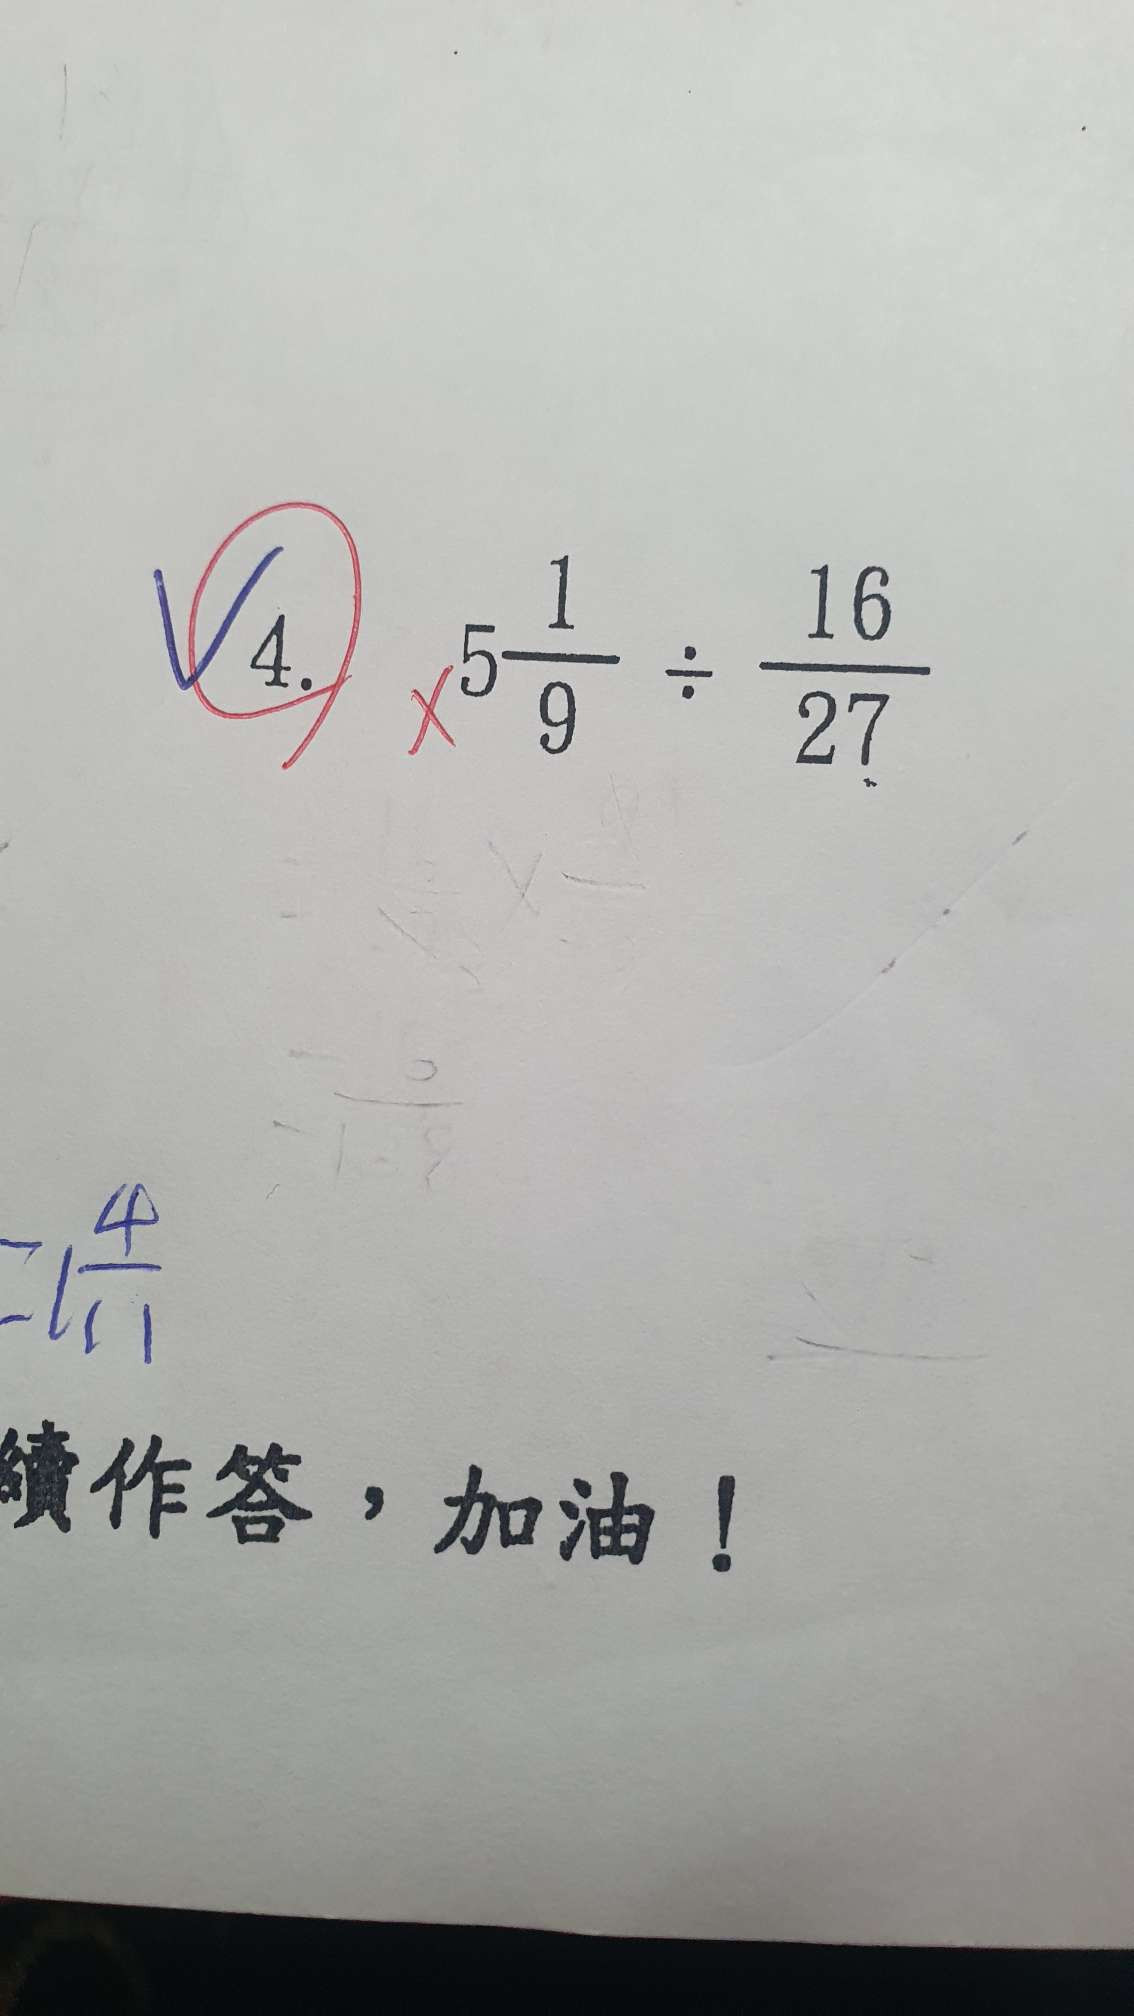 4. 5 1/9 ÷ 16/27
= 1 4/11
續作答，加油！